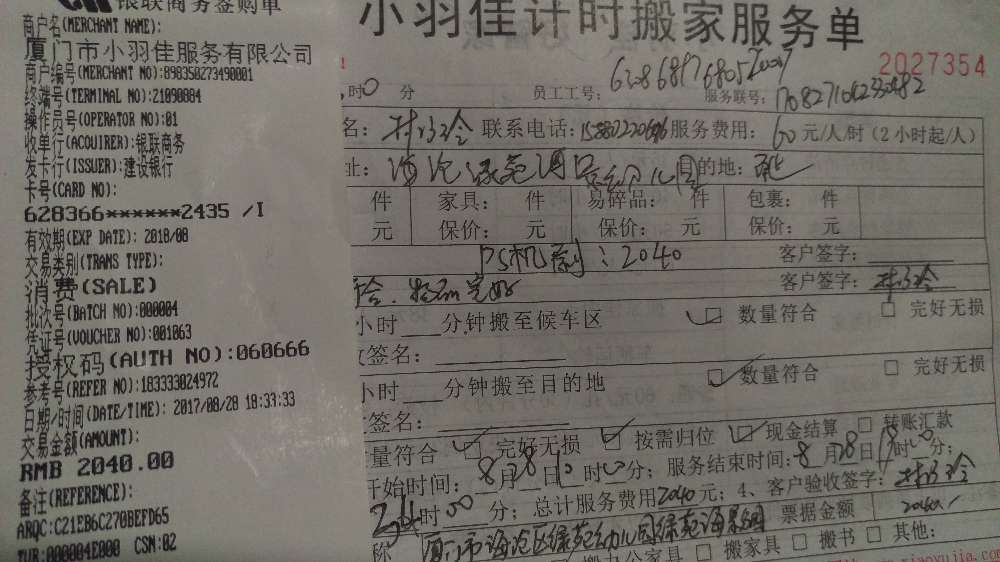 银联商务签购单
商户名(MERCHANT NAME):
厦门市小羽佳服务有限公司
商户编号(MERCHANT NO):898350273490001
终端号(TERMINAL NO):21090884
操作员号(OPERATOR NO):01
收单行(ACQUIRER):银联商务
发卡行(ISSUER):建设银行
卡号(CARD NO):
628366******2435 /I
有效期(EXP DATE): 2018/08
交易类别(TRANS TYPE):
消费(SALE)
批次号(BATCH NO):000004
凭证号(VOUCHER NO):001063
授权码(AUTH NO):060666
参考号(REFER NO):183333024972
日期/时间(DATE/TIME): 2017/08/28 18:33:33
交易金额(AMOUNT):
RMB 2040.00
备注(REFERENCE):
ARQC:C21EB6C270BEFD65
TVR:000004E000 CSN:02
小羽佳计时搬家服务单
2027354
时0 分 员工工号: 服务联号:
名: 联系电话: 服务费用: 60 元/人/时(2小时起/人)
址: 海沧绿苑 幼儿园 目的地:
件 家具: 件 易碎品: 件 包裹: 件
元 保价: 元 保价: 元 保价: 元
POS机刷:2040 客户签字:
完好 客户签字:
小时 分钟搬至候车区 数量符合 □ 完好无损
收签名:
小时 分钟搬至目的地 数量符合 □ 完好无损
签名:
数量符合 □ 完好无损 □ 按需归位 □ 现金结算 □ 转账汇款
开始时间: 8月28日 时00分; 服务结束时间: 8月28日18时00分;
24时00分; 总计服务费用2040元; 4、客户验收签字:
称 厦门市海沧区绿苑幼儿园绿苑海景园 票据金额 2040.
办公家具 □ 搬家具 □ 搬书 □ 其他:
xiaoyujia.com